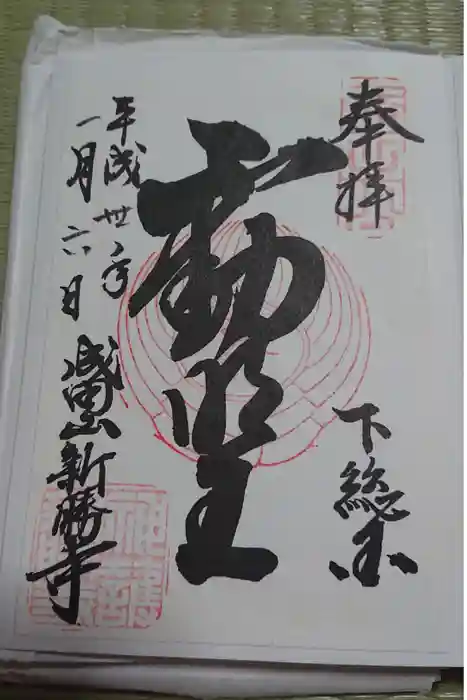 奉拝
下総国
不動明王
平成卅年
一月六日
成田山新勝寺